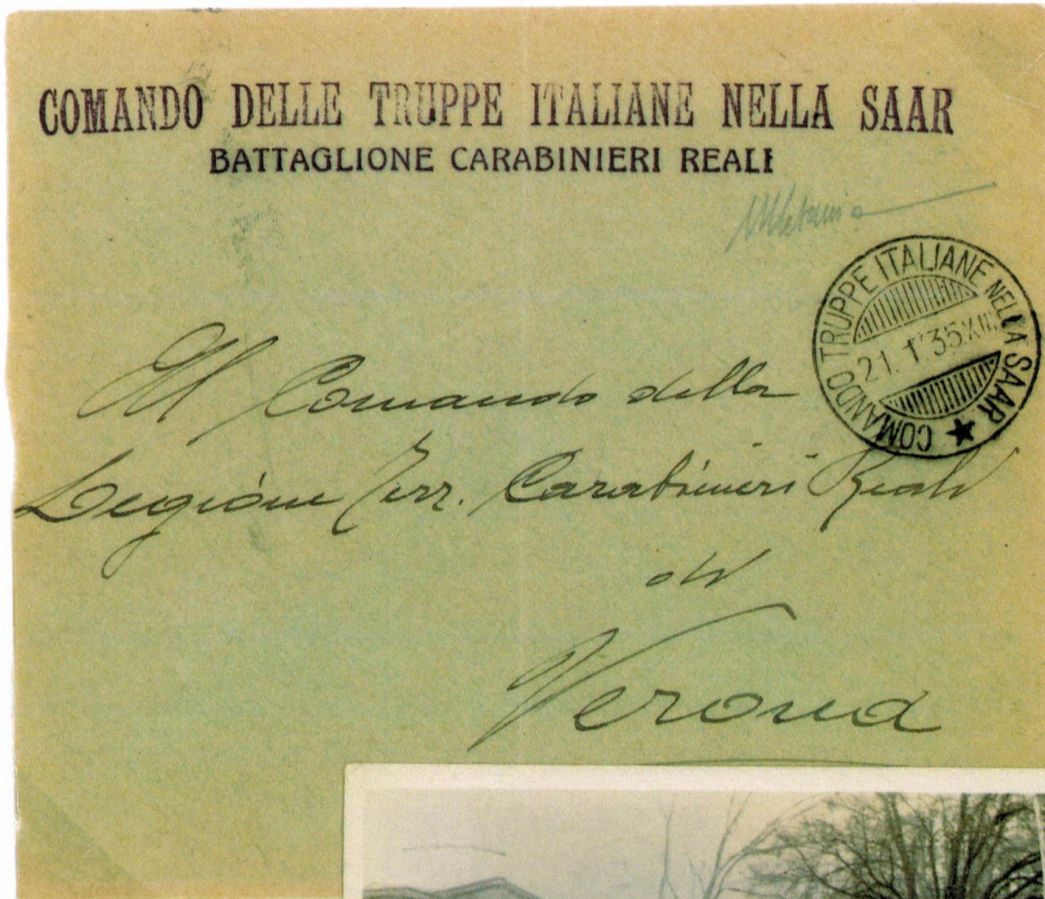 COMANDO DELLE TRUPPE ITALIANE NELLA SAAR
BATTAGLIONE CARABINIERI REALI
COMANDO TRUPPE ITALIANE NELLA SAAR
21. 1 35.XIII
Al Comando della
Legione Terr. Carabinieri Reali
di
Verona